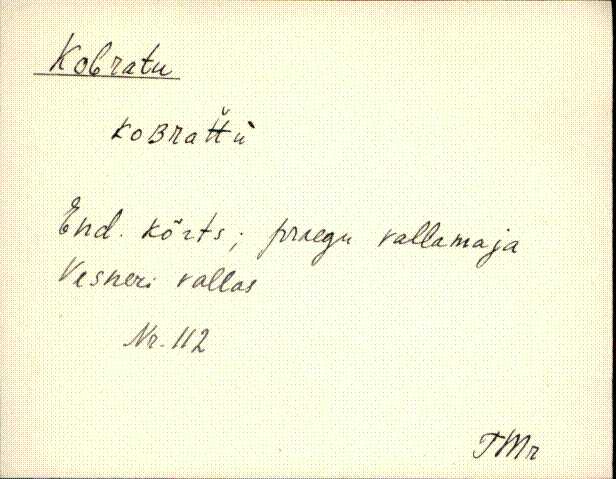 Kobratu
KOBRAT̆T̆ù
End. kõrts; praegu vallamaja
Vesneri vallas
Nr. 112
TMr